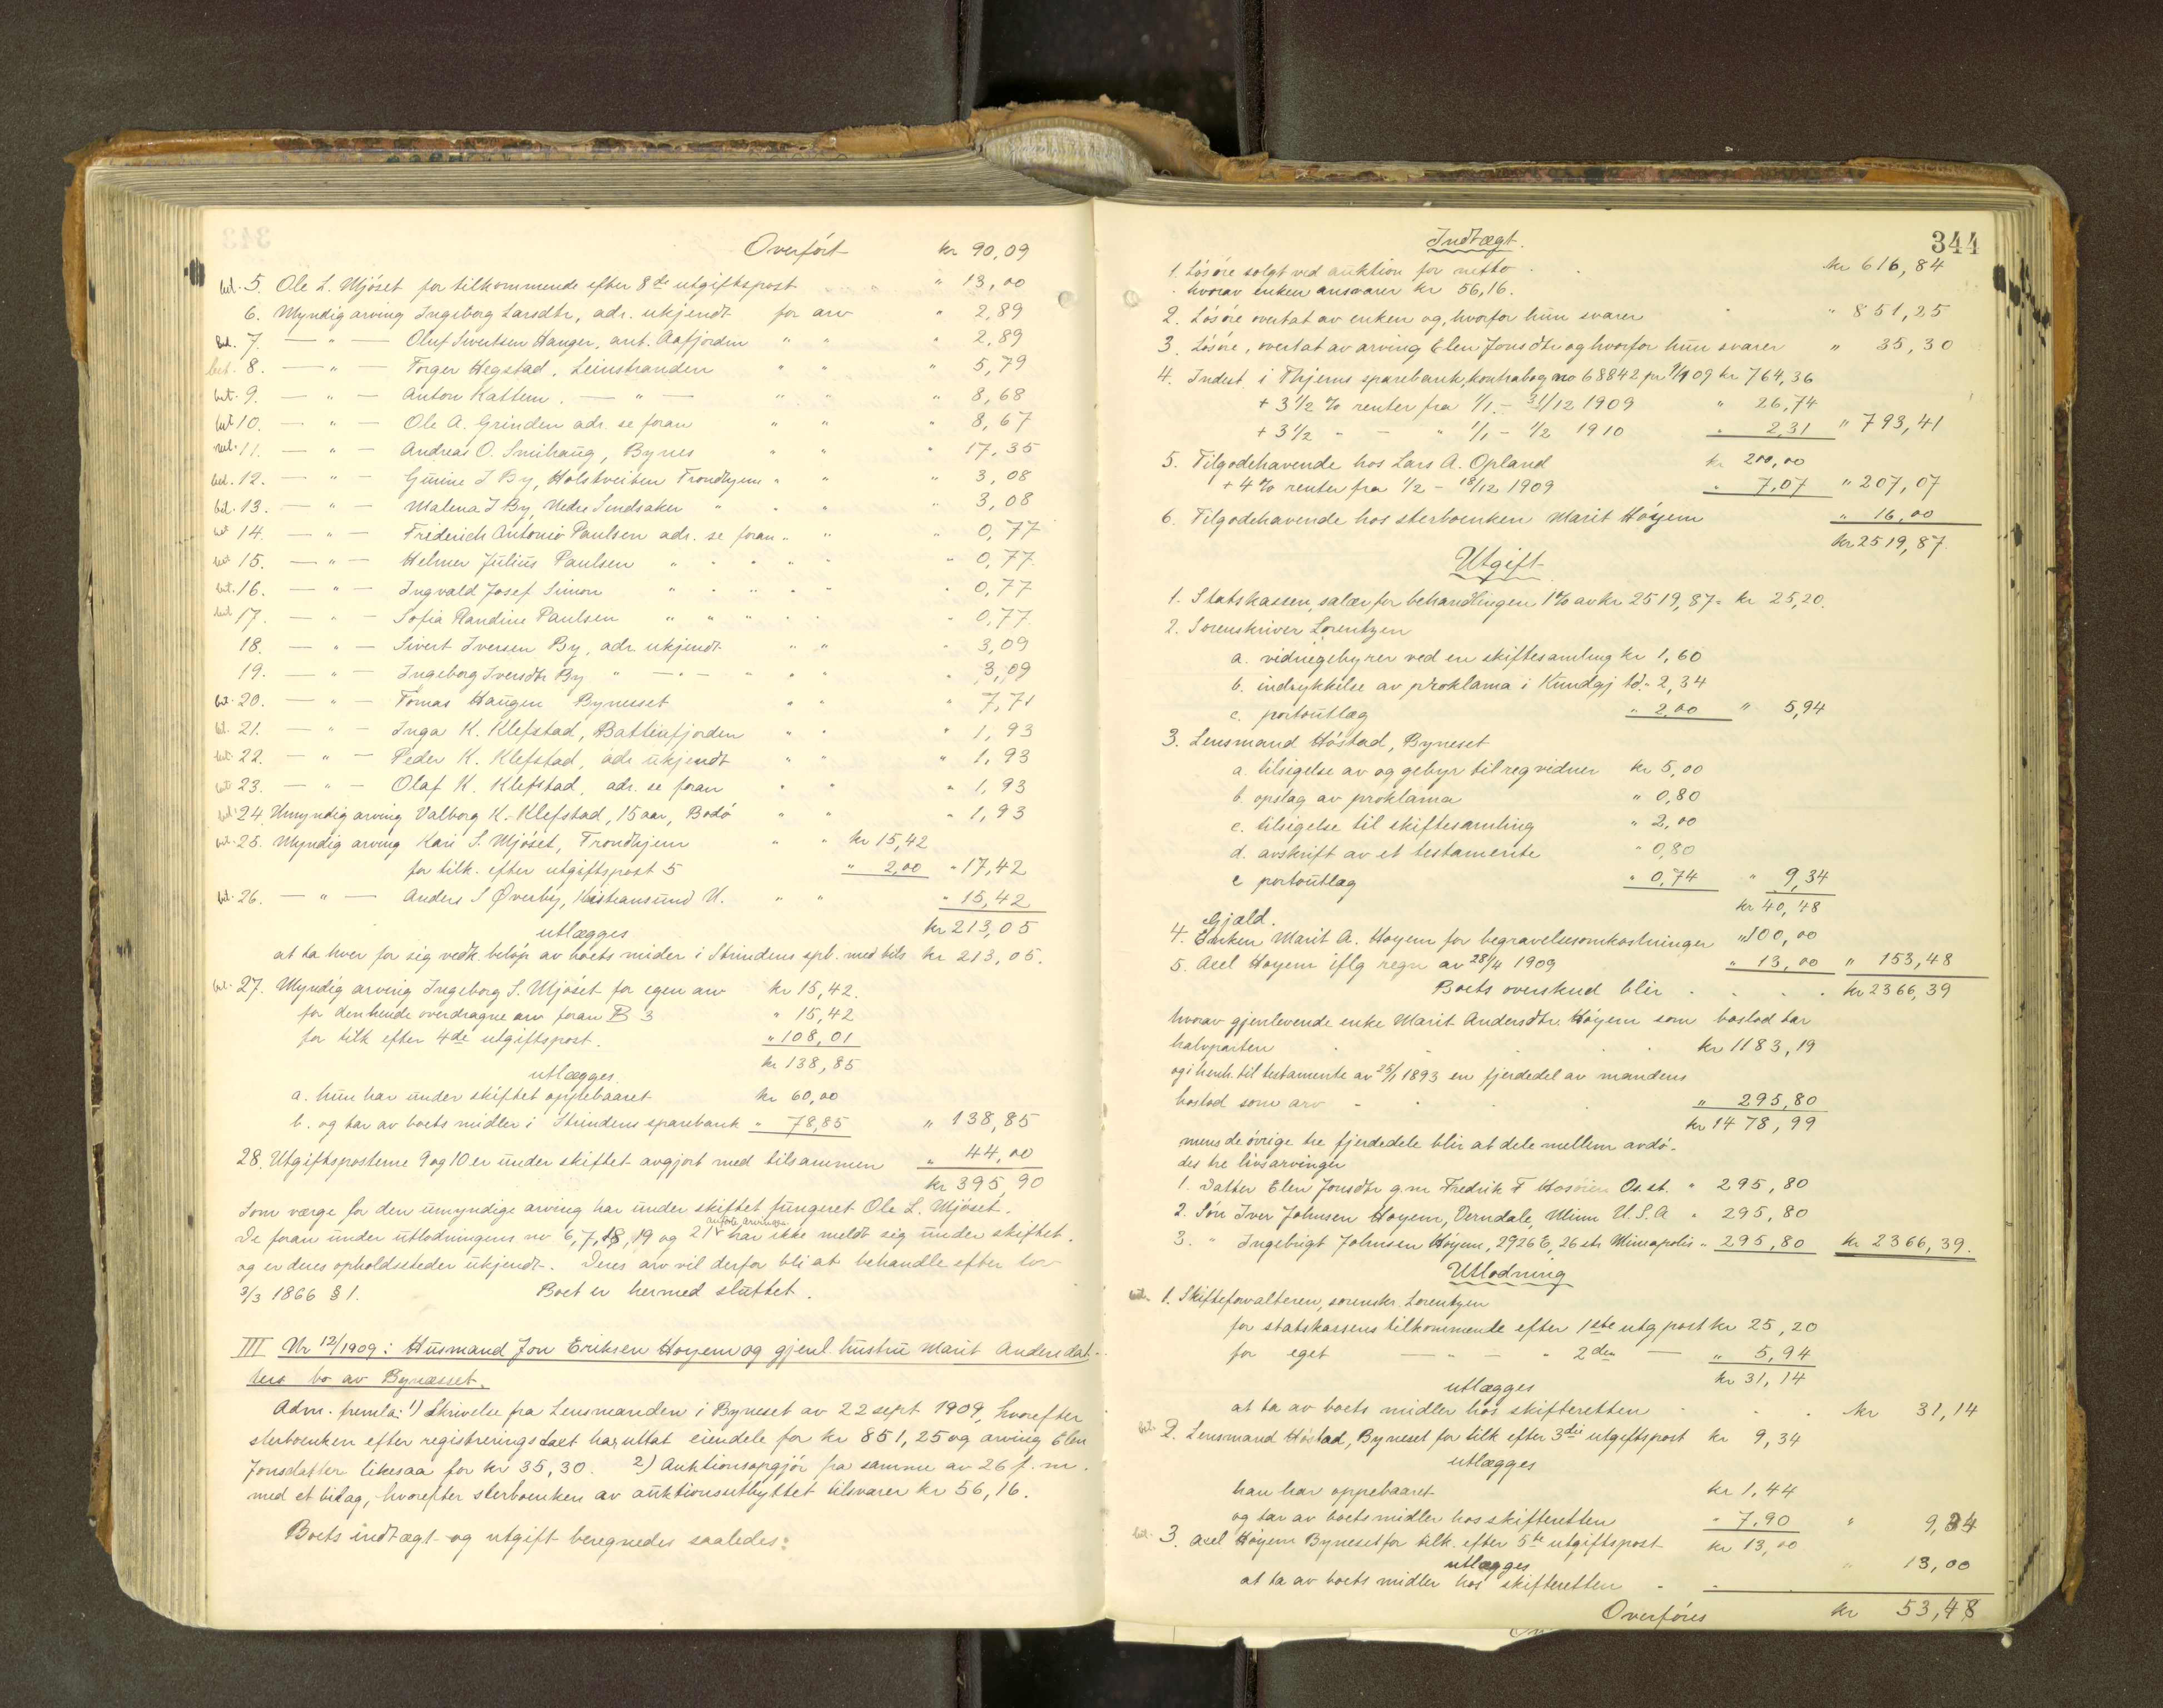 Overført kr 90,09
bet. 5. Ole L. Mjøset for tilkommende efter 8de utgiftspost " 13,00
6. Myndig arving Ingeborg Larsdtr, adr. ukjendt for arv " 2,89
bet. 7. — " — Oluf Sivertsen Hanger, ant. Aafjorden " " " 2,89
bet. 8. — " — Torger Hegstad, Leinstranden " " " 5,79
bet. 9. — " — Anton Kattem. — " — " " " 8,68
bet 10. — " — Ole A. Grinden adr. se foran " " " 8,67
bet. 11. — " — Andreas O. Smihaug, Bynes " " " 17,35
bet. 12. — " — Gurine I By, Holstveiten Trondhjem " " " 3,08
bet. 13. — " — Malena I By, Nedre Sindsaker " " " 3,08
bet 14. — " — Friderich Antoniò Paulsen adr. se foran " " " 0,77
bet 15. — " — Helmer Julius Paulsen " " " " " 0,77
bet. 16. — " — Ingvald Josef Simon " " " " " 0,77
bet. 17. — " — Sofia Randine Paulsen " " " " " 0,77
18. — " — Sivert Iversen By, adr. ukjendt " " 3,09
19. — " — Ingeborg Iversdtr By " — " — " " " 3,09
bet. 20. — " — Tomas Haugen Bynesset " " " 7,71
bet. 21. — " — Inga K. Klefstad, Battenfjorden " " " 1,93
bet. 22. — " — Peder K. Klefstad, adr ukjendt " " " 1,93
bet 23. — " — Olaf K. Klefstad, adr. se foran " " " 1,93
bet 24 Umyndig arving Valborg K. Klefstad, 15 aar, Bodø " " " 1,93
bet. 25. Myndig arving Kari S. Mjøset, Trondhjem " " kr 15,42
for tilk. efter utgiftspost 5 " 2,00 " 17,42
bet. 26. — " — Anders S Øverby, Kristiansund N. " " " 15,42
utlægges kr 213,05
at ta hver for sig vedk. beløp av boets midler i Strindens spb. med tils kr 213,05.
bet. 27. Myndig arving Ingeborg S. Mjøset for egen arv kr 15,42.
for den hende overdragne arv foran B 3 " 15,42
for tilk efter 4de utgiftspost. " 108,01
kr 138,85
utlægges.
a. hun har under skiftet oppebaaret kr 60,00
b. og tar av boets midler i Strindens sparebank " 78,85 " 138,85
28. Utgiftsposterne 9 og 10 er under skiftet avgjort med tilsammen " 44,00
kr 395,90
Som værge for den umyndige arving har under skiftet fungeret Ole L. Mjøset.
De foran under utlodningens no 6, 7, 18, 19 og 21 anførte arvinger har ikke meldt sig under skiftet.
og er deres opholdssteder ukjendt. Deres arv vil derfor bli at behandle efter lov
3/3 1866 § 1. Boet er hermed sluttet.
III Nr 12/1909: Husmand Jon Eriksen Høyem og gjenl. hustru Marit Andersdat-
ters bo av Bynæsset.
Adm. fremla: 1) Skrivelse fra Lensmanden i Byneset av 22 sept 1909, hvorefter
sterboenken efter registreringstaxt har uttat eiendele for kr 851,25 og arving Elen
Jonsdatter likesaa for kr 35,30. 2) Auktionsopgjør fra samme av 26 f. m.
med et bilag, hvorefter sterboenken av auktionsutbyttet tilsvarer kr 56,16.
Boets indtægt og utgift beregnedes saaledes:
344
Indtægt.
1. Løsøre solgt ved auktion for netto . . kr 616,84
hvorav enken ansvarer kr 56,16.
2. Løsøre overtat av enken og, hvorfor hun svarer " " 851,25
3. Løsøre, overtat av arving Elen Jonsdtr og hvorfor hun svarer " 35,30
4. Indest. i Thjems sparebank, kontrabog no 68842 pr 1/1 09 kr 764,36
+ 3 1/2 % renter fra 1/1 - 31/12 1909 " 26,74
+ 3 1/2 " - " 1/1 - 1/2 1910 " 2,31 " 793,41
5. Tilgodehavende hos Lars A. Opland kr 200,00
+ 4 % renter fra 1/2 - 18/12 1909 " 7,07 " 207,07
6. Tilgodehavende hos sterboenken Marit Høyem " 16,00
kr 2519,87
Utgift
1. Statskassen, salær for behandlingen 1% av kr 2519,87 = kr 25,20.
2. Sorenskriver Lorentzen
a. vidnegebyrer ved en skiftesamling kr 1,60
b. indrykkelse av proklama i Kundgj td. " 2,34
c. portoutlæg " 2,00 " 5,94
3. Lensmand Høstad, Byneset
a. tilsigelse av og gebyr til reg vidner kr 5,00
b. opslag av proklama " 0,80
c. tilsigelse til skiftesamling " 2,00
d. avskrift av et testamente " 0,80
e portoutlæg " 0,74 " 9,34
kr 40,48
Gjæld.
4. Enken Marit A. Høyem for begravelsesomkostninger " 100,00
5. Axel Høyem iflg regn av 28/4 1909 " 13,00 " 153,48
Boets overskud blir . . . . kr 2366,39
hvorav gjenlevende enke Marit Andersdtr. Høyem som boslod tar
halvparten . . . . kr 1183,19
og i henh. til testamente av 25/1 1893 en fjerdedel av mandens
boslod som arv - . . " 295,80
kr 1478,99
mens de øvrige tre fjerdedele blir at dele mellem avdø-
des tre livsarvinger
1. Datter Elen Jonsdtr g.m Fredrik F Høsøien Os. st. " 295,80
2. Søn Iver Johnsen Høyem, Verndale, Minn U.S.A " 295,80
3. " Ingebrigt Johnsen Høyem, 2926 E, 26 str Mineapolis " 295,80 kr 2366,39.
Utlodning
bet. 1. Skifteforvalteren, sorenskr. Lorentzen
for statskassens tilkommende efter 1ste utg post kr 25,20
for eget — " — " 2den — " 5,94
kr 31,14
utlægges
at ta av boets midler hos skifteretten . . . kr 31,14
bet. 2. Lensmand Høstad, Byneset for tilk efter 3die utgiftspost kr 9,34
utlægges
han har oppebaaret kr 1,44
og tar av boets midler hos skifteretten " 7,90 " 9,34
bet. 3. Axel Høyem Byneset for tilk. efter 5te utgiftspost kr 13,00
utlægges
at ta av boets midler hos skifteretten . . " 13,00
Overføres kr 53,48